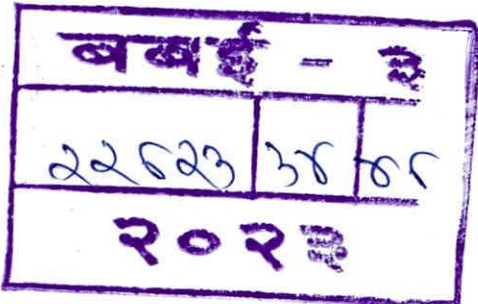 बबई - ३
२२८२३ ३४ ४८
२०२३